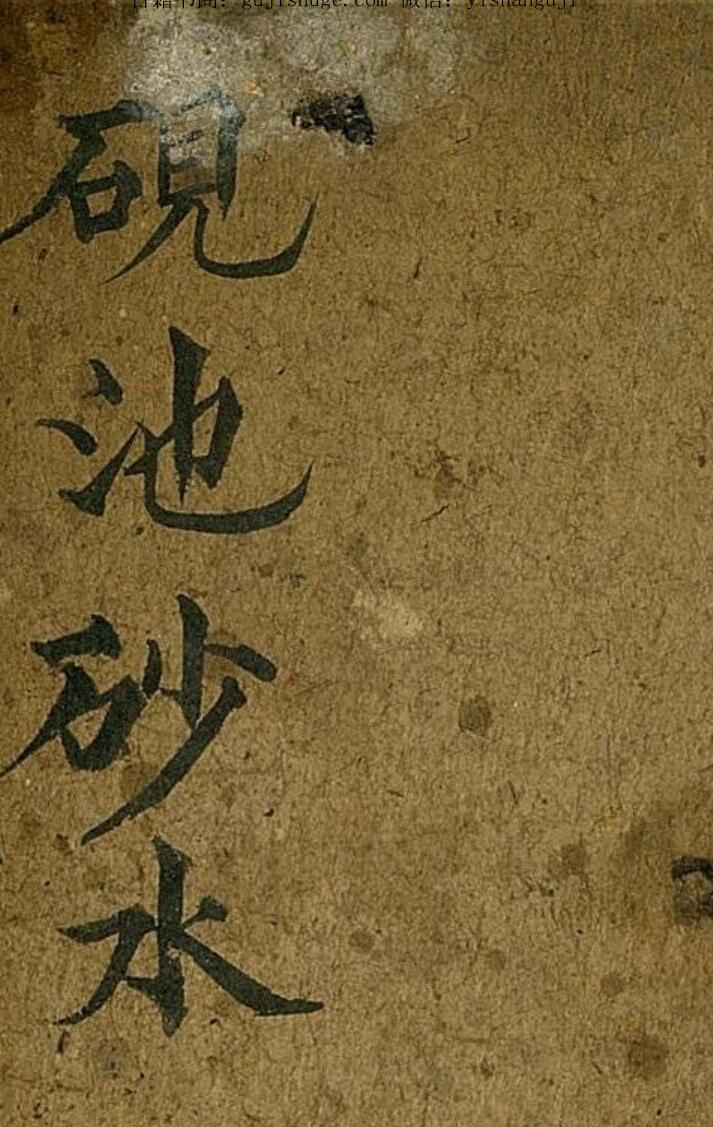 古籍书阁：gujishuge.com 微信：yishanguji
硯池砂水